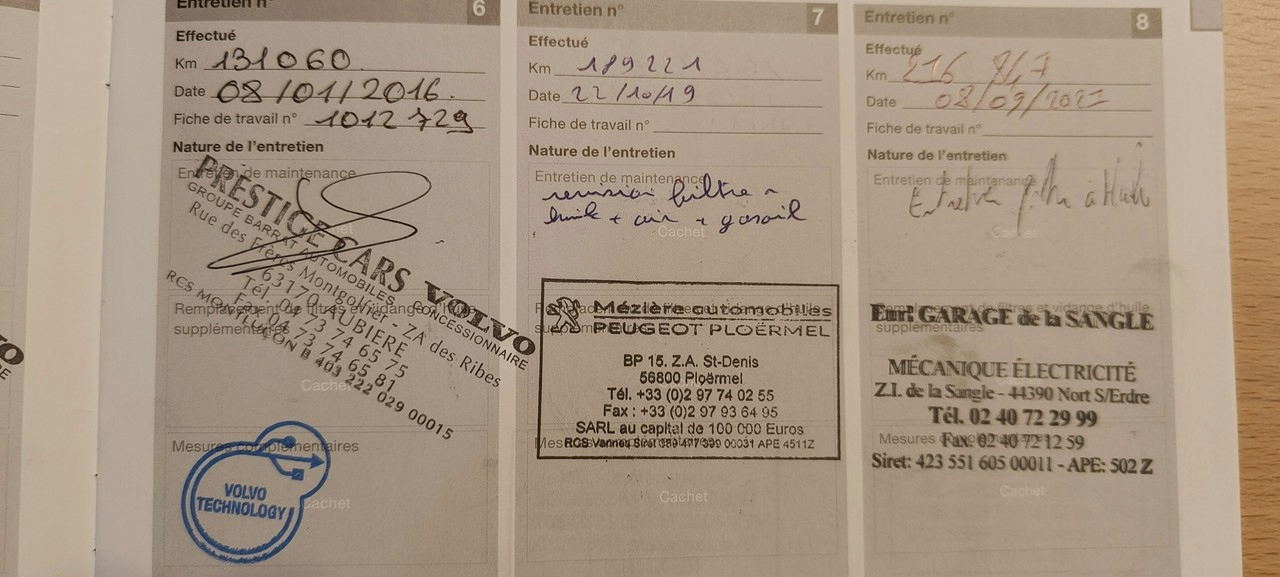 Entretien n° 6
Effectué
Km 131060
Date 08/01/2016.
Fiche de travail n° 1012729
Nature de l'entretien
Entretien de maintenance
Cachet
PRESTIGE CARS VOLVO
GROUPE BARRAT AUTOMOBILES - CONCESSIONNAIRE
Rue des Frères Montgolfier - ZA des Ribes
63170 AUBIERE
Tél. 04 73 74 65 75
Fax 04 73 74 65 81
RCS MONTLUÇON B 403 222 029 00015
Remplacement de filtres et vidange d'huile
supplémentaires
Cachet
Mesures complémentaires
VOLVO
TECHNOLOGY
Cachet
Entretien n° 7
Effectué
Km 189221
Date 22/10/19
Fiche de travail n°
Nature de l'entretien
Entretien de maintenance
revision filtre
huile + air + gasoil
Cachet
Mézière automobiles
PEUGEOT PLOËRMEL
BP 15. Z.A. St-Denis
56800 Ploërmel
Tél. +33 (0)2 97 74 02 55
Fax : +33 (0)2 97 93 64 95
SARL au capital de 100 000 Euros
RCS Vannes Siret 00031 APE 4511Z
Cachet
Entretien n° 8
Effectué
Km 216
Date
Fiche de travail n°
Nature de l'entretien
Entretien de maintenance
Cachet
Remplacement de filtres et vidange d'huile
supplémentaires
Eurl GARAGE de la SANGLE
MÉCANIQUE ÉLECTRICITÉ
Z.I. de la Sangle - 44390 Nort S/Erdre
Tél. 02 40 72 29 99
Mesures complémentaires
Fax. 02 40 72 12 59
Siret: 423 551 605 00011 - APE: 502 Z
Cachet